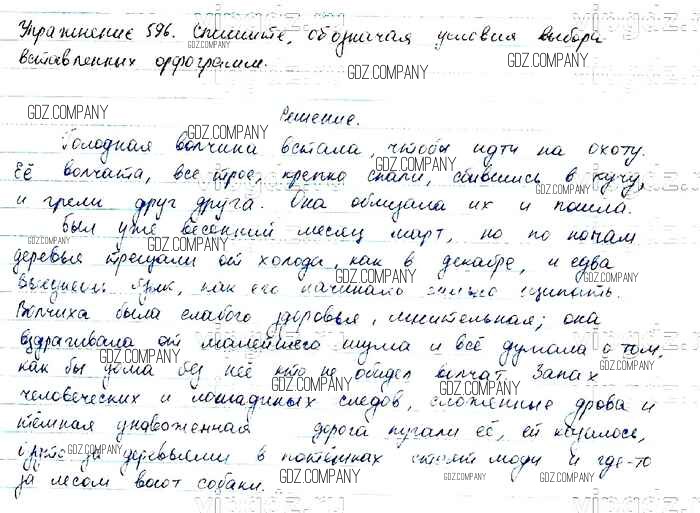 Упражнение 596. Спишите, обозначая условия выбора
вставленных орфограмм.
Решение.
Голодная волчиха встала, чтобы идти на охоту.
Её волчата, все трое, крепко спали, сбившись в кучу,
и грели друг друга. Она облизала их и пошла.
Был уже весенний месяц март, но по ночам
деревья трещали от холода, как в декабре, и едва
высунешь язык, как его начинало сильно щипать.
Волчиха была слабого здоровья, мнительная; она
вздрагивала от малейшего шума и всё думала о том,
как бы дома без неё кто не обидел волчат. Запах
человеческих и лошадиных следов, сложенные дрова и
тёмная унавоженная дорога пугали её, ей казалось,
за деревьями в потёмках стоят люди и где-то
за лесом воют собаки.
GDZ.COMPANY